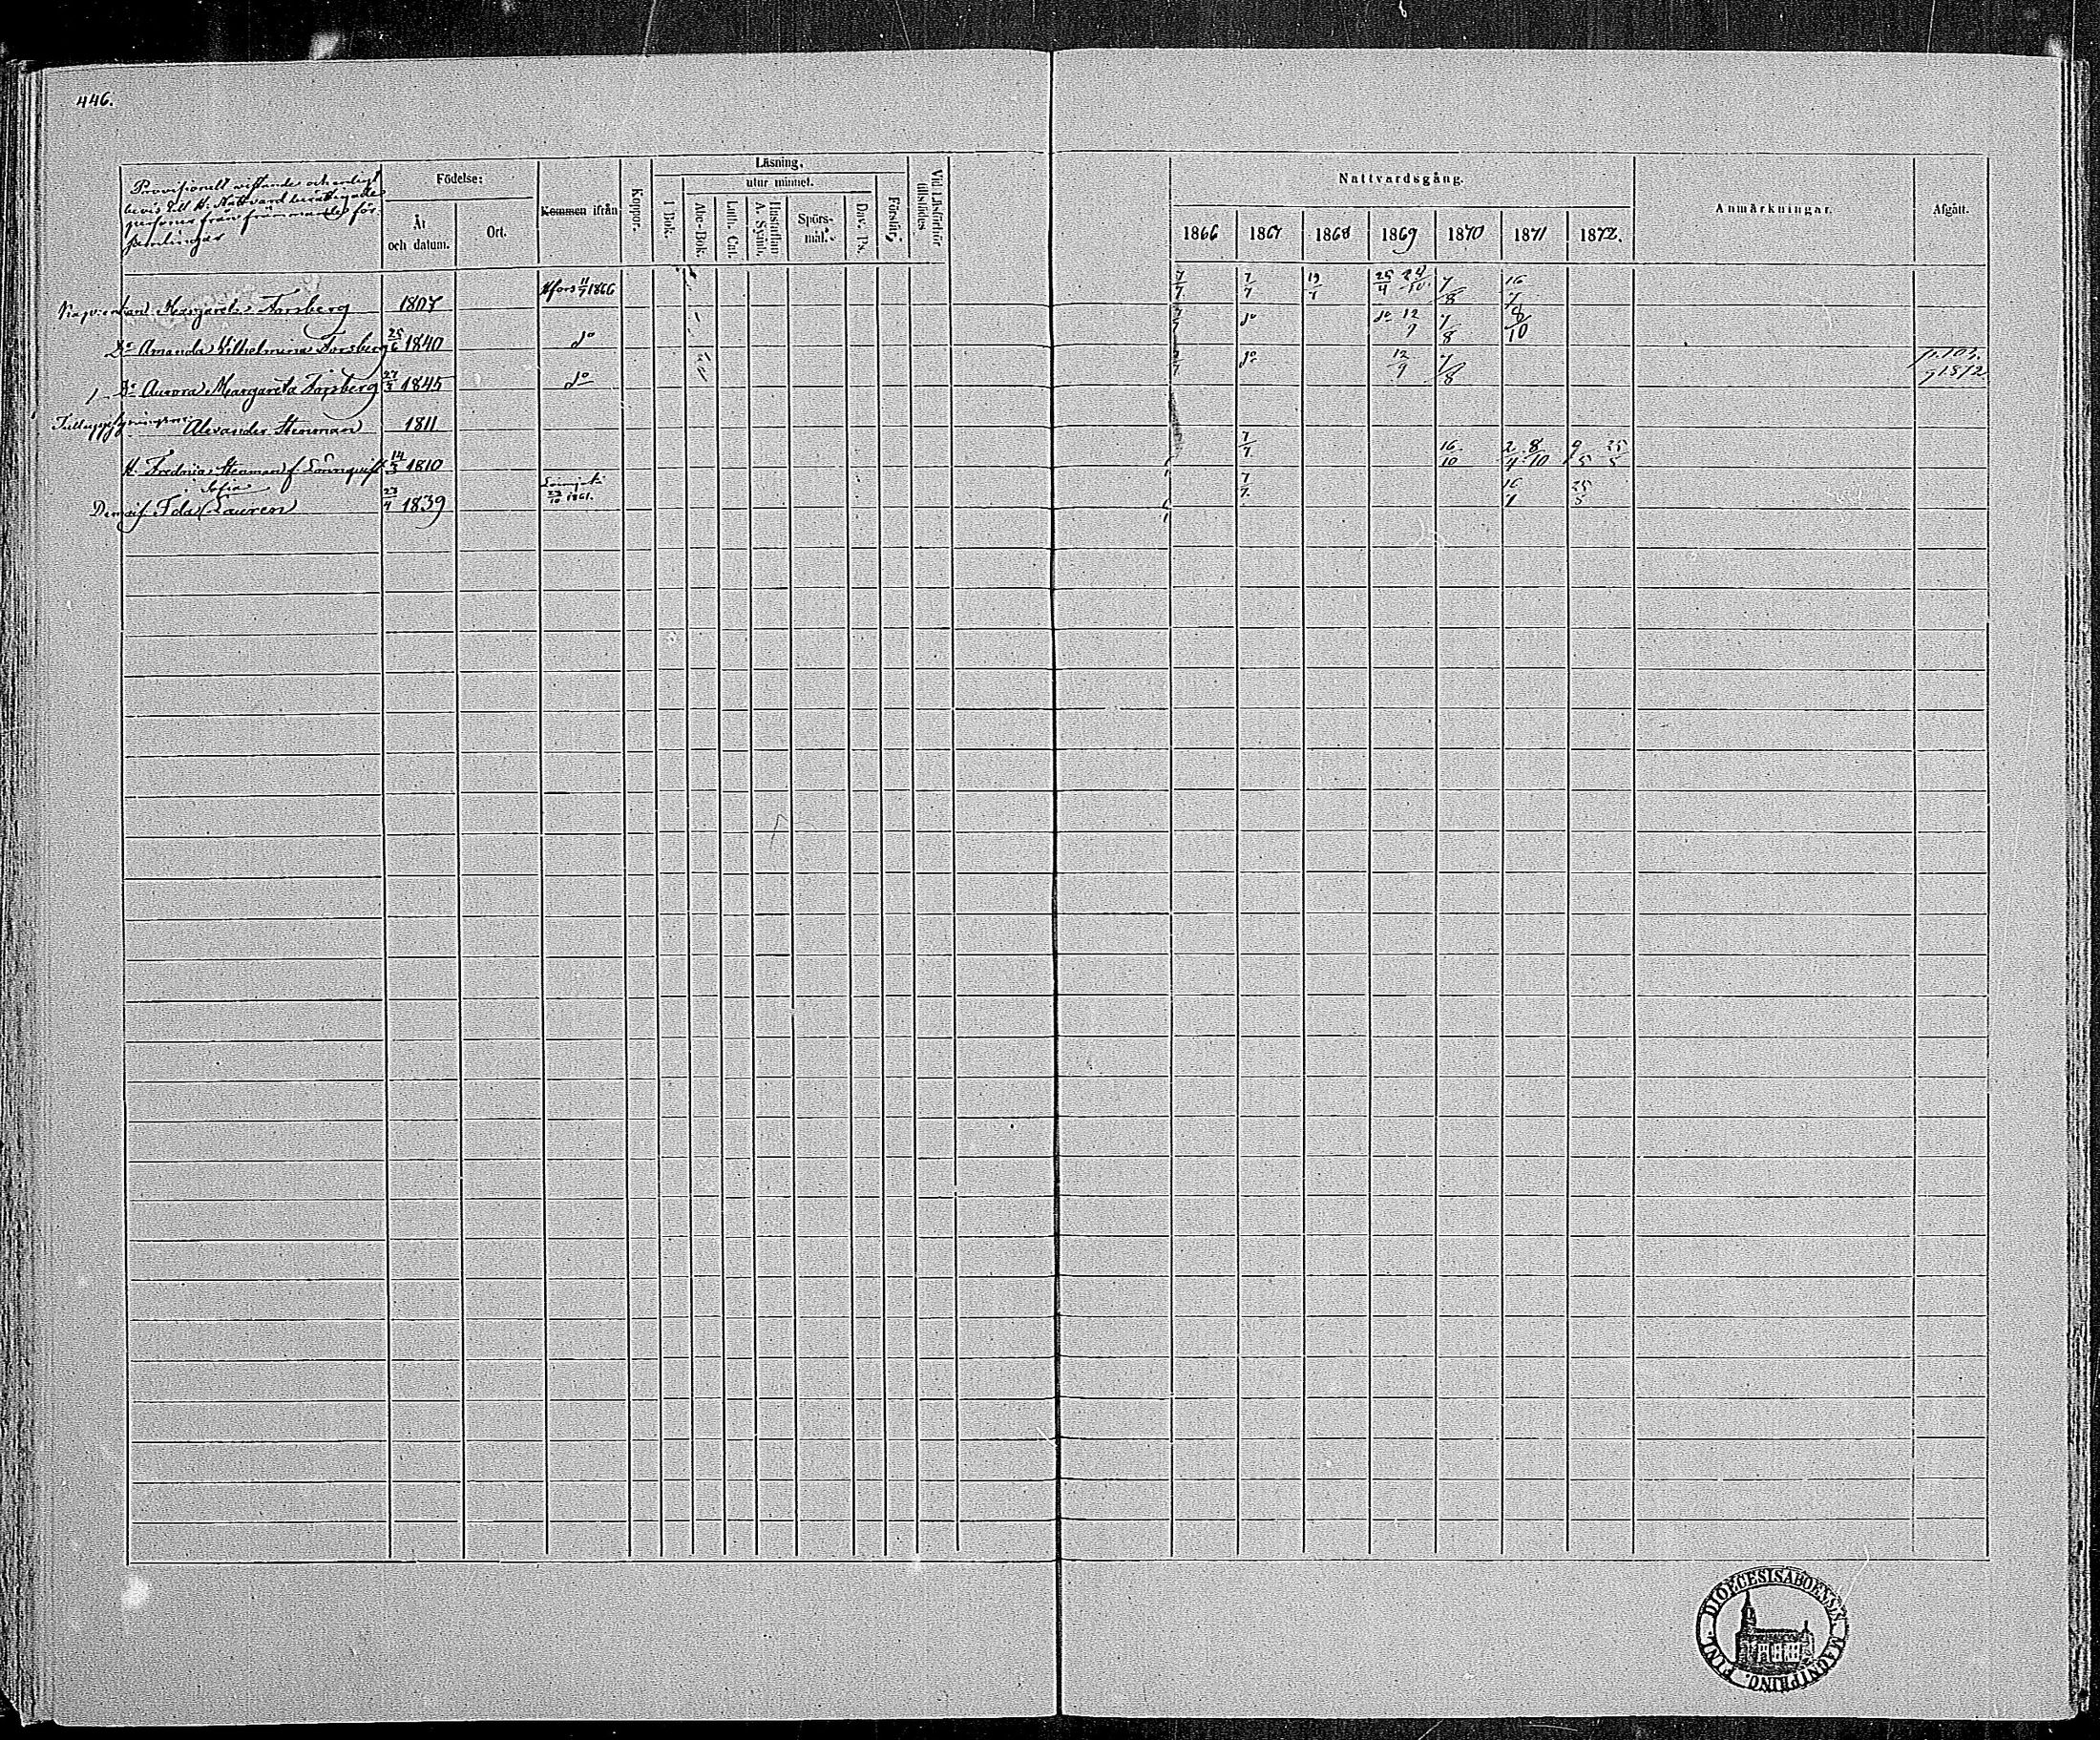 446.
Provisionelt vistande och enligt
bevis till H. Nattvard berättigade
personer från främmande för-
samlingar
Födelse:
År
och datum.
Ort.
Kommen ifrån
Koppor.
Läsning,
utur minnet.
I Bok.
Abc-Bok.
Luth. Cat.
Hustaflan
A. Symb.
Spörs-
mål.
Dav. Ps.
Förstår,
Vid Läsförhör
tillstädes
Nattvardsgång.
1866 1867 1868 1869 1870 1871 1872.
Anmärkningar.
Afgått.
Margareta Forsberg 1807 Hfors 11/7 1866 7/7 7/7 19/7 25/4 24/10 7/8 16/7
Do Amanda Vilhelmina Forsberg 25/6 1840 do 7/7 do do 12/9 7/8 8/10
Do Aurora Margareta Forsberg 27/3 1845 do 7/7 do 12/9 7/8 p. 103. 1872
Alexander Stenman 1811
H. Fredrica Stenman f. Lönnqvist 14/3 1810 7/7 16/10 2/7 8/10 9/5 25/5
Sofia
Demois. Ida Lauren 23/4 1839 23/10 1861. 7/7 16/7 25/5
DIOECESIS ABOENSIS MAGNI PRINC. FINL.